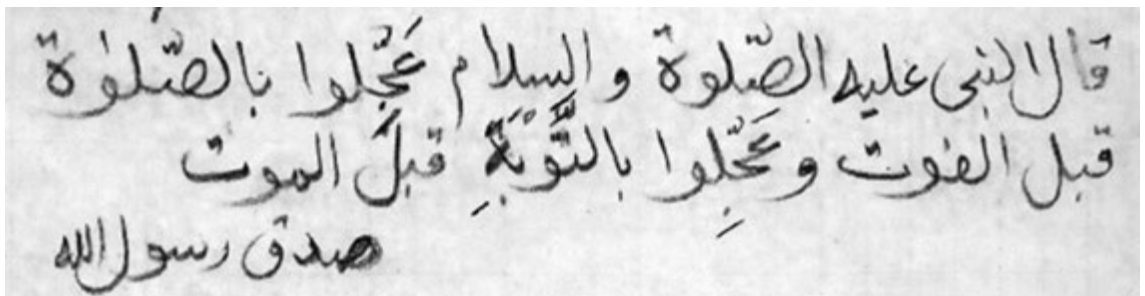 قال النبى عليه الصّلوة والسلام عَجِّلوا بالصّلوٰة
قبل الفوت وعَجِّلوا بالتَّوْبَةِ قبلَ الموت
صدق رسول الله